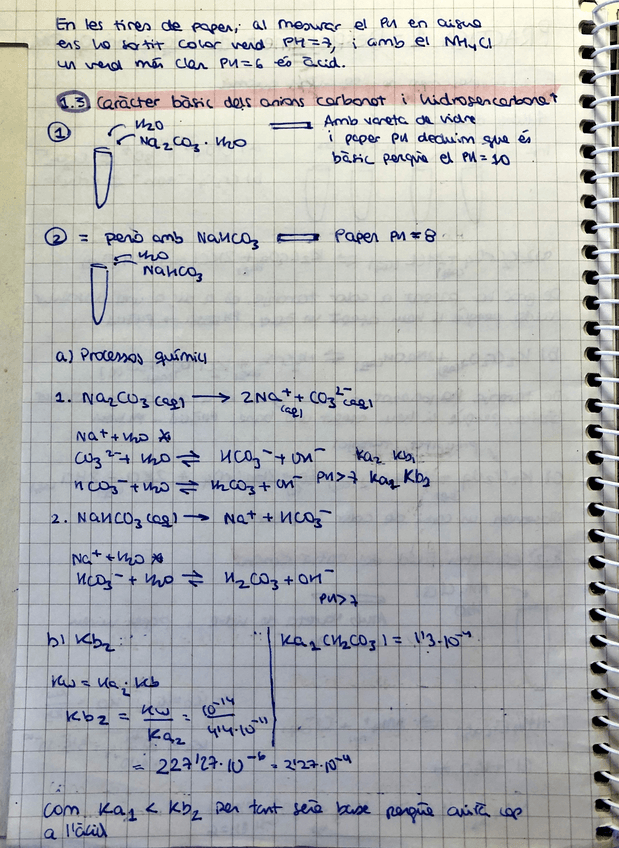 En les tires de paper, al mesurar el PH en aigua
ens ha sortit color verd PH=7, i amb el NH4Cl
un verd més clar PH=6 és àcid.
1.3 Caràcter bàsic dels anions carbonat i hidrogencarbonat
① H2O
Na2CO3 · H2O
Amb vareta de vidre
i paper PH deduim que és
bàsic perquè el PH=10
② = però amb NaHCO3 Paper PH=8
H2O
NaHCO3
a) Processos químics
1. Na2CO3 (aq) → 2Na+ (aq) + CO3 2- (aq)
Na+ + H2O
CO3 2- + H2O ⇌ HCO3- + OH- Ka2 Kb1
HCO3- + H2O ⇌ H2CO3 + OH- PH>7 Ka1 Kb2
2. NaHCO3 (aq) → Na+ + HCO3-
Na+ + H2O
HCO3- + H2O ⇌ H2CO3 + OH-
PH>7
b) Kb2:
Ka1 (H2CO3) = 4'3·10^-7
Kw = Ka2 · Kb
Kb2 = Kw/Ka2 = 10^-14/4'4·10^-11
= 227'27·10^-6 = 2'27·10^-4
Com Ka1 < Kb2 per tant serà base perquè cap
a l'àcid